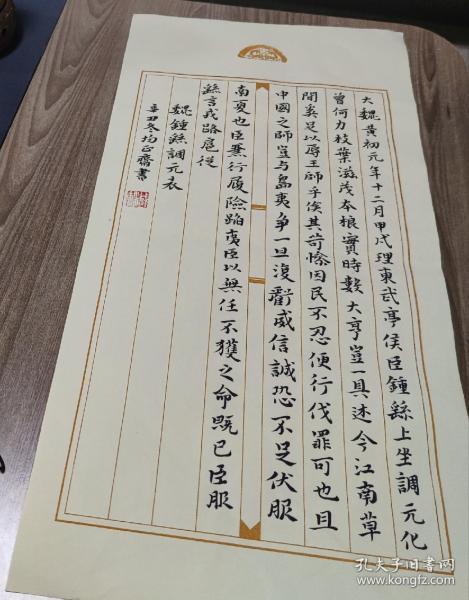 大魏黄初元年十二月甲戌理東武亭侯臣鍾繇上坐調元化
曾何力枝葉滋茂本根實時數大亨豈一具述今江南草
間奚足以辱王師乎俟其苛慘因民不忍便行伐罪可也且
中國之師豈与島夷爭一旦復虧威信誠恐不足伏服
南夏也臣兼行履險蹈夷臣以無任不獲之命既已臣服
繇言戎路扈従
魏鍾繇調元表
辛丑冬均正齋書
孔夫子旧書网
www.kongfz.com